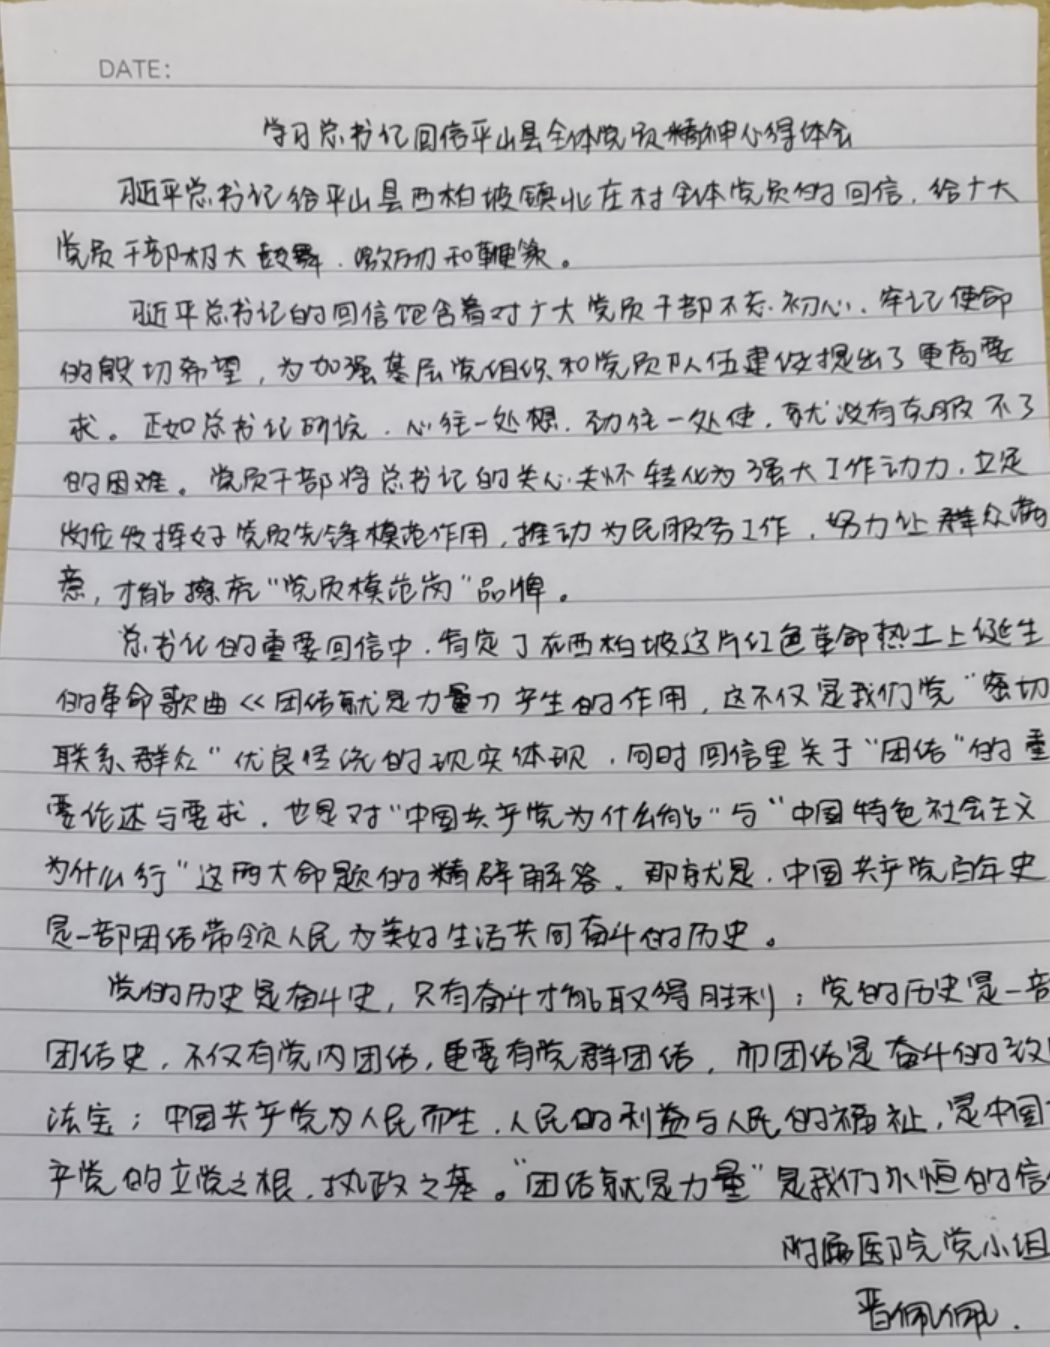 DATE:
学习总书记回信平山县全体党员精神心得体会
习近平总书记给平山县西柏坡镇北庄村全体党员的回信，给广大
党员干部极大鼓舞、激励和鞭策。
习近平总书记的回信饱含着对广大党员干部不忘初心、牢记使命
的殷切希望，为加强基层党组织和党员队伍建设提出了更高要
求。正如总书记所说，心往一处想，劲往一处使，就没有克服不了
的困难。党员干部将总书记的关心关怀转化为强大工作动力，立足
岗位发挥好党员先锋模范作用，推动为民服务工作，努力让群众满
意，才能擦亮“党员模范岗”品牌。
总书记的重要回信中，肯定了在西柏坡这片红色革命热土上诞生
的革命歌曲《团结就是力量》产生的作用，这不仅是我们党“密切
联系群众”优良传统的现实体现，同时回信里关于“团结”的重
要论述与要求，也是对“中国共产党为什么能”与“中国特色社会主义
为什么行”这两大命题的精辟解答。那就是，中国共产党百年史
是一部团结带领人民为美好生活共同奋斗的历史。
党的历史是奋斗史，只有奋斗才能取得胜利；党的历史是一部
团结史，不仅有党内团结，更要有党群团结，而团结是奋斗的
法宝；中国共产党为人民而生，人民的利益与人民的福祉，是中国
产党的立党之根，执政之基。“团结就是力量”是我们永恒的信
附属医院党小组
晋佩佩.